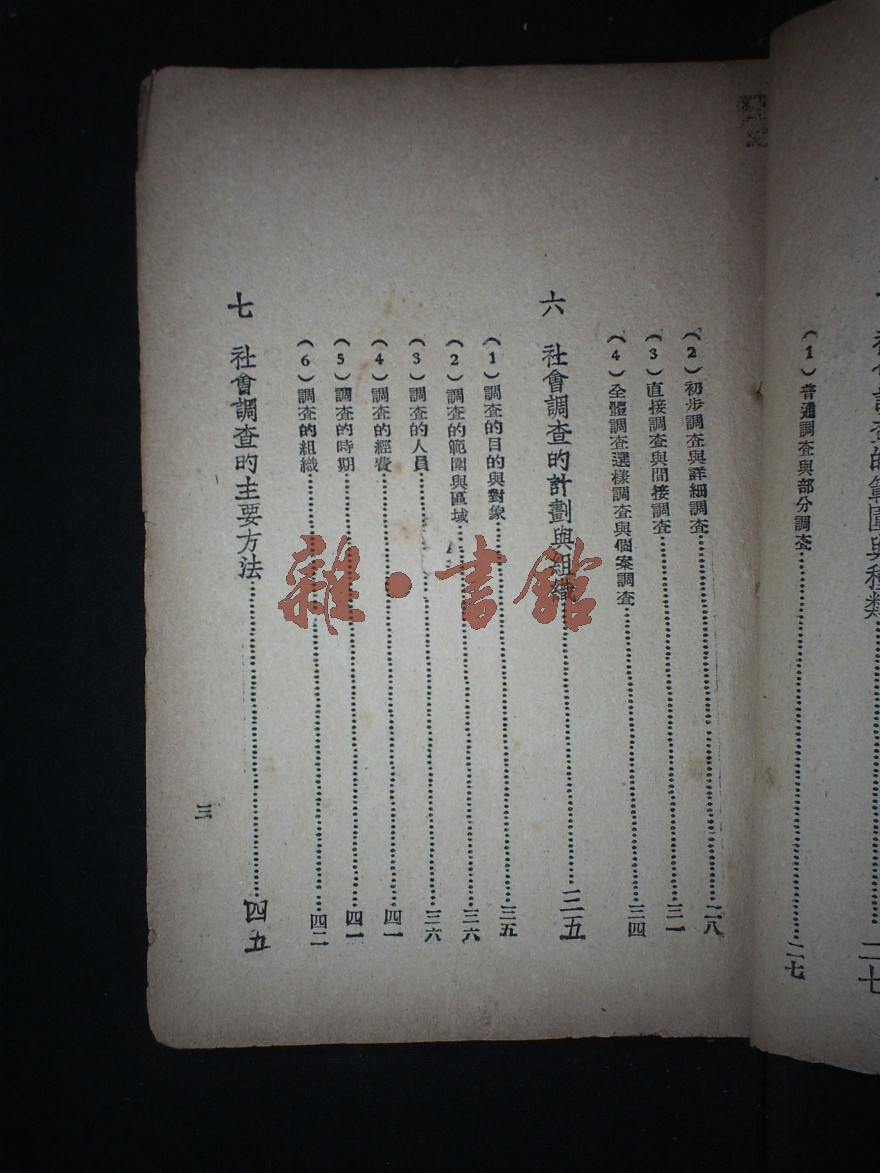 社會調查的範圍與種類……二七
（1）普通調查與部分調查……二七
（2）初步調查與詳細調查……二八
（3）直接調查與間接調查……三一
（4）全體調查選樣調查與個案調查……三四
六 社會調查的計劃與組織……三五
（1）調查的目的與對象……三五
（2）調查的範圍與區域……三六
（3）調查的人員……三六
（4）調查的經費……四一
（5）調查的時期……四一
（6）調查的組織……四二
七 社會調查的主要方法……四五
三
雜·書館